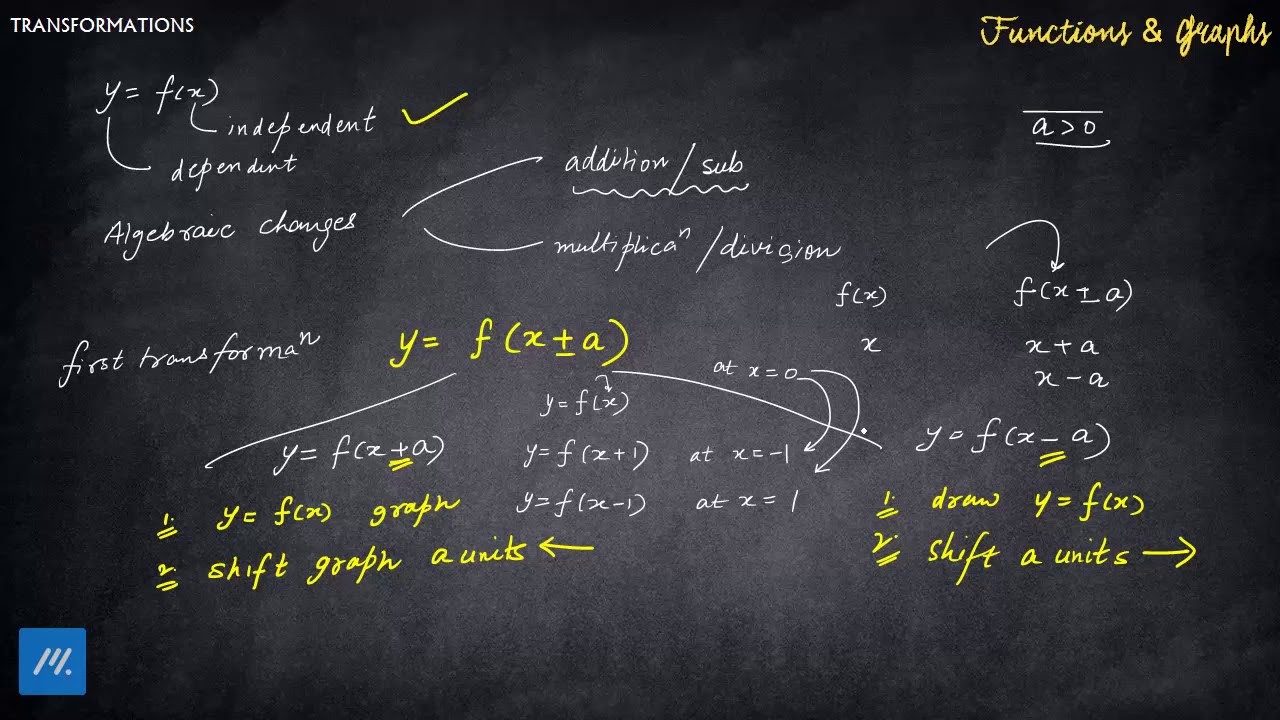 TRANSFORMATIONS
Functions & Graphs
y = f(x)
independent
dependent
a > 0
Algebraic changes
addition / sub
multiplicaⁿ / division
f(x)
f(x ± a)
x
x + a
x - a
first transformaⁿ
y = f(x ± a)
at x = 0
y = f(x)
y = f(x + a)
y = f(x+1) at x = -1
y = f(x-1) at x = 1
y = f(x - a)
1. y = f(x) graph
2. shift graph a units ←
1. draw y = f(x)
2. shift a units →